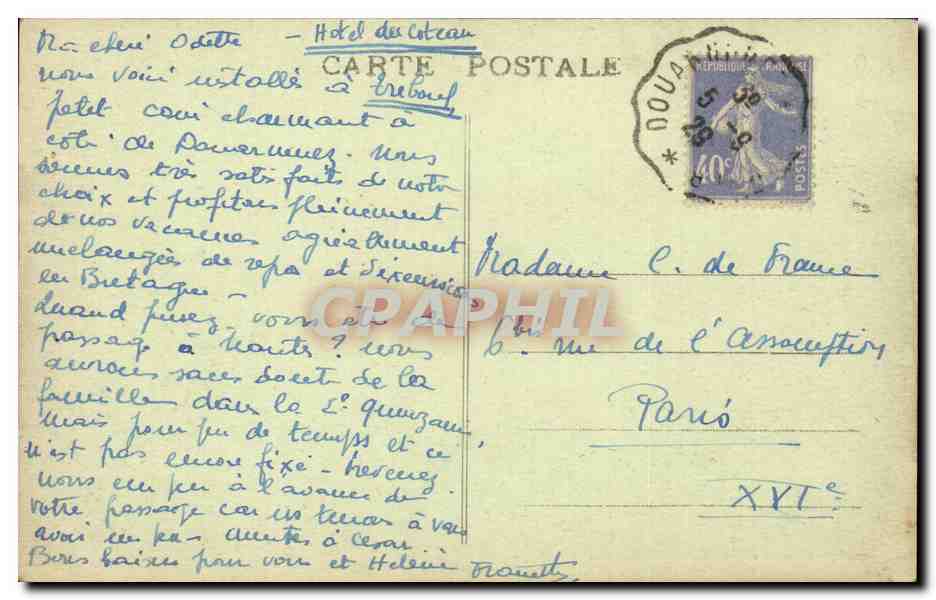 Ma chère Odette - Hotel du Coteau
CARTE POSTALE
nous voici installés à Treboul
petit coin charmant à
côté de Douarnenez. Nous
sommes très satisfaits de notre
choix et profitons pleinement
de nos vacances agréablement
mélangées de repos et d'excursions
en Bretagne -
Quand pensez-vous être de
passage à Nantes? Nous
aurons sans doute de la
famille dans la 2e quinzaine
mais pour peu de temps et ce
n'est pas encore fixé - Prévenez
nous un peu à l'avance de
votre passage car ns tenons à vous
avoir un peu
Bons baisers pour vous et Hélène
RÉPUBLIQUE FRANÇAISE
40c
POSTES
DOUAR
5 -9
29
CPAPHIL
Madame C. de France
6bis rue de l'Assomption
Paris
XVIe